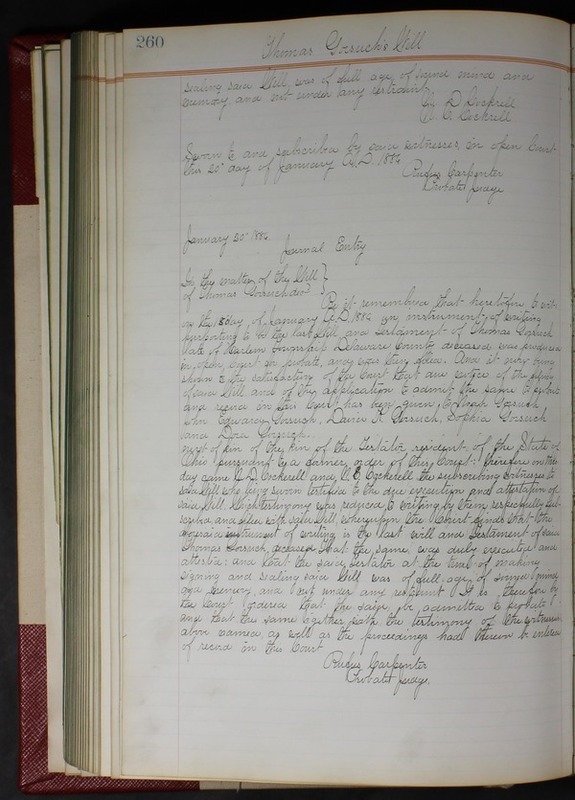 260
Thomas Gorsuch's Will
sealing said Will, was of full age, of sound mind and
memory and not under any restraint
D Cockrell
C. Cockrell
Sworn to and subscribed by said witnesses, in open Court
this 20" day of January A.D. 1886
Rufus Carpenter
Probate Judge
January 20" 1886
Journal Entry
In the matter of the Will }
of Thomas Gorsuch decd
Be it remembered that heretofore to wit:
on the day of January A.D. 1886 an instrument of writing
purporting to be the last Will and Testament of Thomas Gorsuch
late of Harlem Township, Delaware County, deceased was produced
in open Court for probate, and was then filed. And it now being
shown to the satisfaction of the Court that due notice of the filing
of said Will and of the application to admit the same to probate
and record in this Court has been given to Gorsuch,
John Edward Gorsuch, K. Gorsuch, Sophia Gorsuch
and Dora Gorsuch
next of kin of the Testator resident of the State of
Ohio pursuant to a former order of the Court: Therefore on this
day came D. Cockerell and C. Cockerell the subscribing witnesses to
said Will who being sworn testified to the due execution and attestation of
said Will, which testimony was reduced to writing by them respectfully sub-
scribed, and filed with said Will, whereupon the Court finds that the
aforesaid instrument of writing is the last will and Testament of said
Thomas Gorsuch, deceased that the same was duly executed and
attested: and that the said Testator at the time of making
signing and sealing said Will was of full age of sound mind
and memory, and not under any restraint It is therefore by
the Court ordered that the same be admitted to probate
and that the same together with the testimony of the witnesses
above named as well as the proceedings had therein be entered
of record in this Court
Rufus Carpenter
Probate Judge.